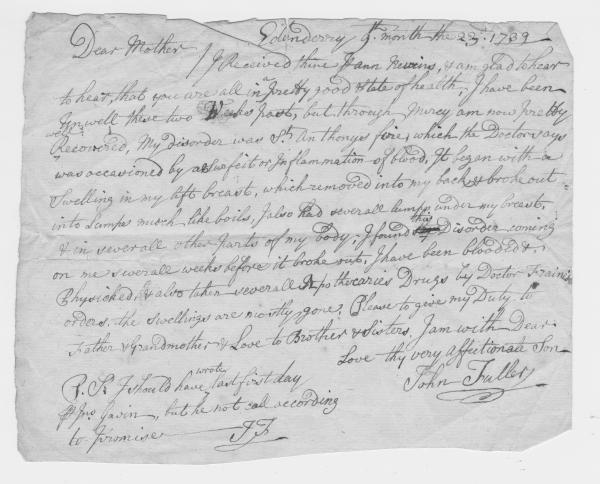 Edenderry 9th month the 23d: 1739
Dear Mother
I Received thine ann Nevins, & am glad to hear
to hear, that you are all in pretty good state of health, I have been
Unwell these two Weeks past, but through Mercy am now pretty
well
Recovered, My Disorder was St. Anthonys fire, which the Doctor says
was occasioned by a Surfeit or Inflammation of blood. It began with a
Swelling in my left breast, which removed into my back & broke out
into Lumps much like boils, I also had severall lumps under my breast,
& in severall other parts of my body. I found this Disorder coming
on me severall weeks before it broke out, I have been blooded &
Physicked, & also taken severall Apothecaries Drugs by Doctor
orders. the Swellings are mostly gone. Please to give my Duty to
Father & Grandmother & Love to Brother & Sisters, I am with Dear
Love thy very affectionate Son
John Fuller
P. S. I should have wrote last first day
P Jno. Gavin, but he not call according
to Promise
J F